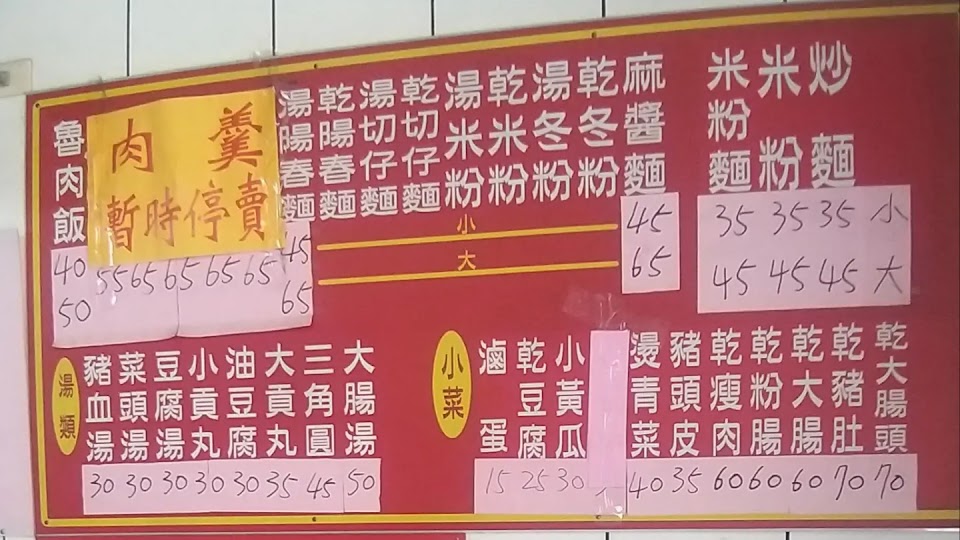 魯肉飯
肉羹
暫時停賣
湯陽春麵
乾陽春麵
湯切仔麵
乾切仔麵
湯米粉
乾米粉
湯冬粉
乾冬粉
麻醬麵
米粉麵
米粉
炒麵
小
大
40 55 65 65 65 65 45 45 35 35 35 小
50 65 65 45 45 45 大
湯類
豬血湯
菜頭湯
豆腐湯
小貢丸
油豆腐
大貢丸
三角圓
大腸湯
30 30 30 30 30 35 45 50
小菜
滷蛋
乾豆腐
小黃瓜
燙青菜
豬頭皮
乾瘦肉
乾粉腸
乾大腸
乾豬肚
乾大腸頭
15 25 30 40 35 60 60 60 70 70